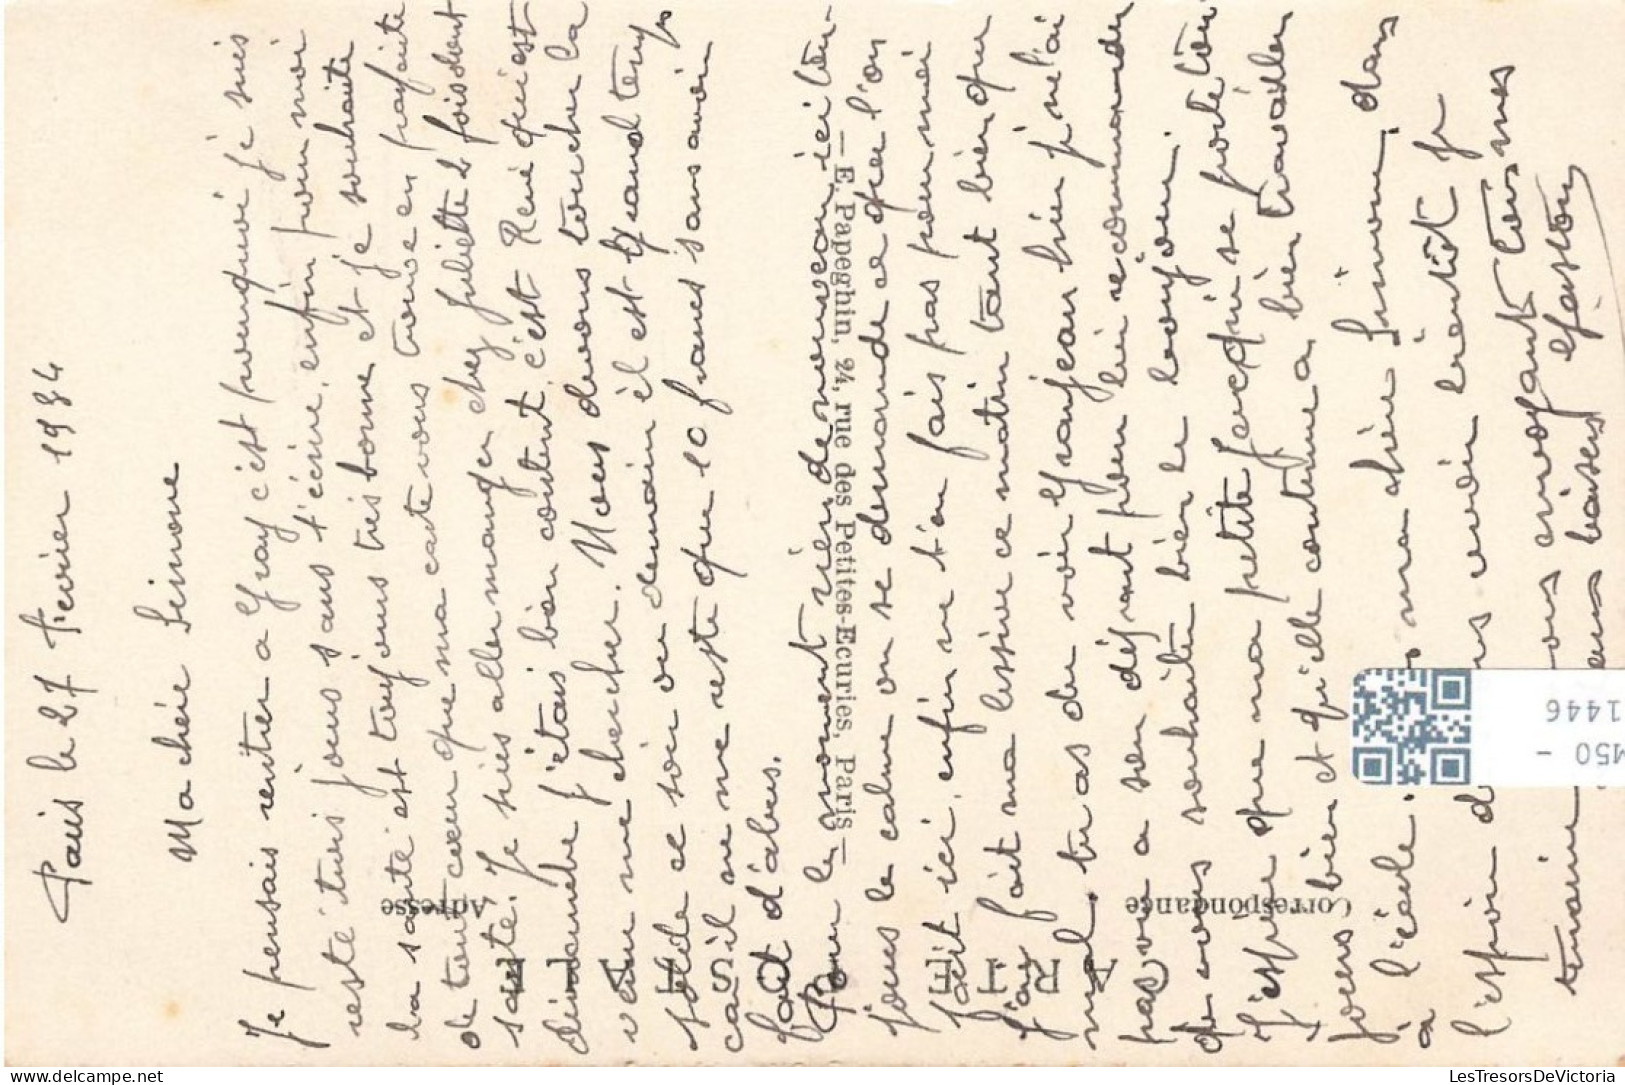 Paris le 27 Fevrier 1934
Ma chérie Simone
Je pensais rentrer a Gray c'est pourquoi je suis
resté turis jours sans t'écrire, enfin pour moi
la santé est toujours tres bonne et je souhaite
de tout cœur que ma carte vous trouve en parfaite
santé. Je suis aller manger chez Juliette 2 fois dont
dimanche j'étais bien content, c'est René qui est
venu me chercher. Nous devons toucher la
solde ce soir ou demain il est grand temps
car il ne me reste que 10 francs sans avoir
fait d'abus.
Pour le moment rien de nouveau ici tou-
jours le calme on se demande ce que l'on
fait ici, enfin ne t'en fais pas pour moi
j'ai fait ma lessive ce matin tant bien que
mal. tu as du voir Granjean hier je ne l'ai
pas vu a son départ pour lui recommander
de vous souhaiter bien le bonjour.
J'espère que ma petite Jacqueline se porte tou-
jours bien et qu'elle continue a bien travailler
à l'école. ma chère Simone, dans
l'espoir de vous revoir bientôt je
termine en vous envoyant tous mes
meilleurs baisers Gaston
E. Papeghin, 24, rue des Petites-Ecuries, Paris
CARTE POSTALE
Correspondance
Adresse
M50 -
1446
LesTresorsDeVictoria